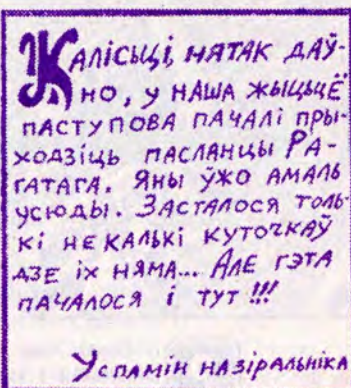 Калісьці, нятак даў-
но, у наша жыцьцё
паступова пачалі пры-
ходзіць пасланцы Ра-
гатага. Яны ўжо амаль
усюды. Засталося толь-
кі некалькі куточкаў
дзе іх няма... Але гэта
пачалося і тут!!!
Успамін назіральніка